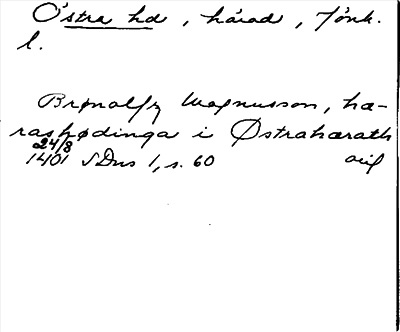 Östra hd, härad, Jönk.
l.
Brynolff Magnusson, hæ-
rashødinga i Østrahærath
24/8
1401 SDns 1, s. 60 avif